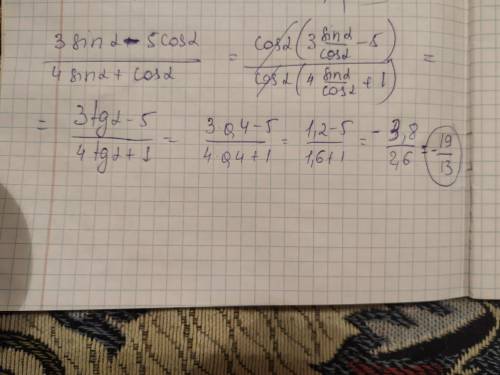 (3 sin α - 5 cos α) / (4 sin α + cos α) = (cos α (3 sin α / cos α - 5)) / (cos α (4 sin α / cos α + 1)) =
= (3 tg α - 5) / (4 tg α + 1) = (3·0,4 - 5) / (4·0,4 + 1) = (1,2 - 5) / (1,6 + 1) = - 3,8 / 2,6 = - 19 / 13